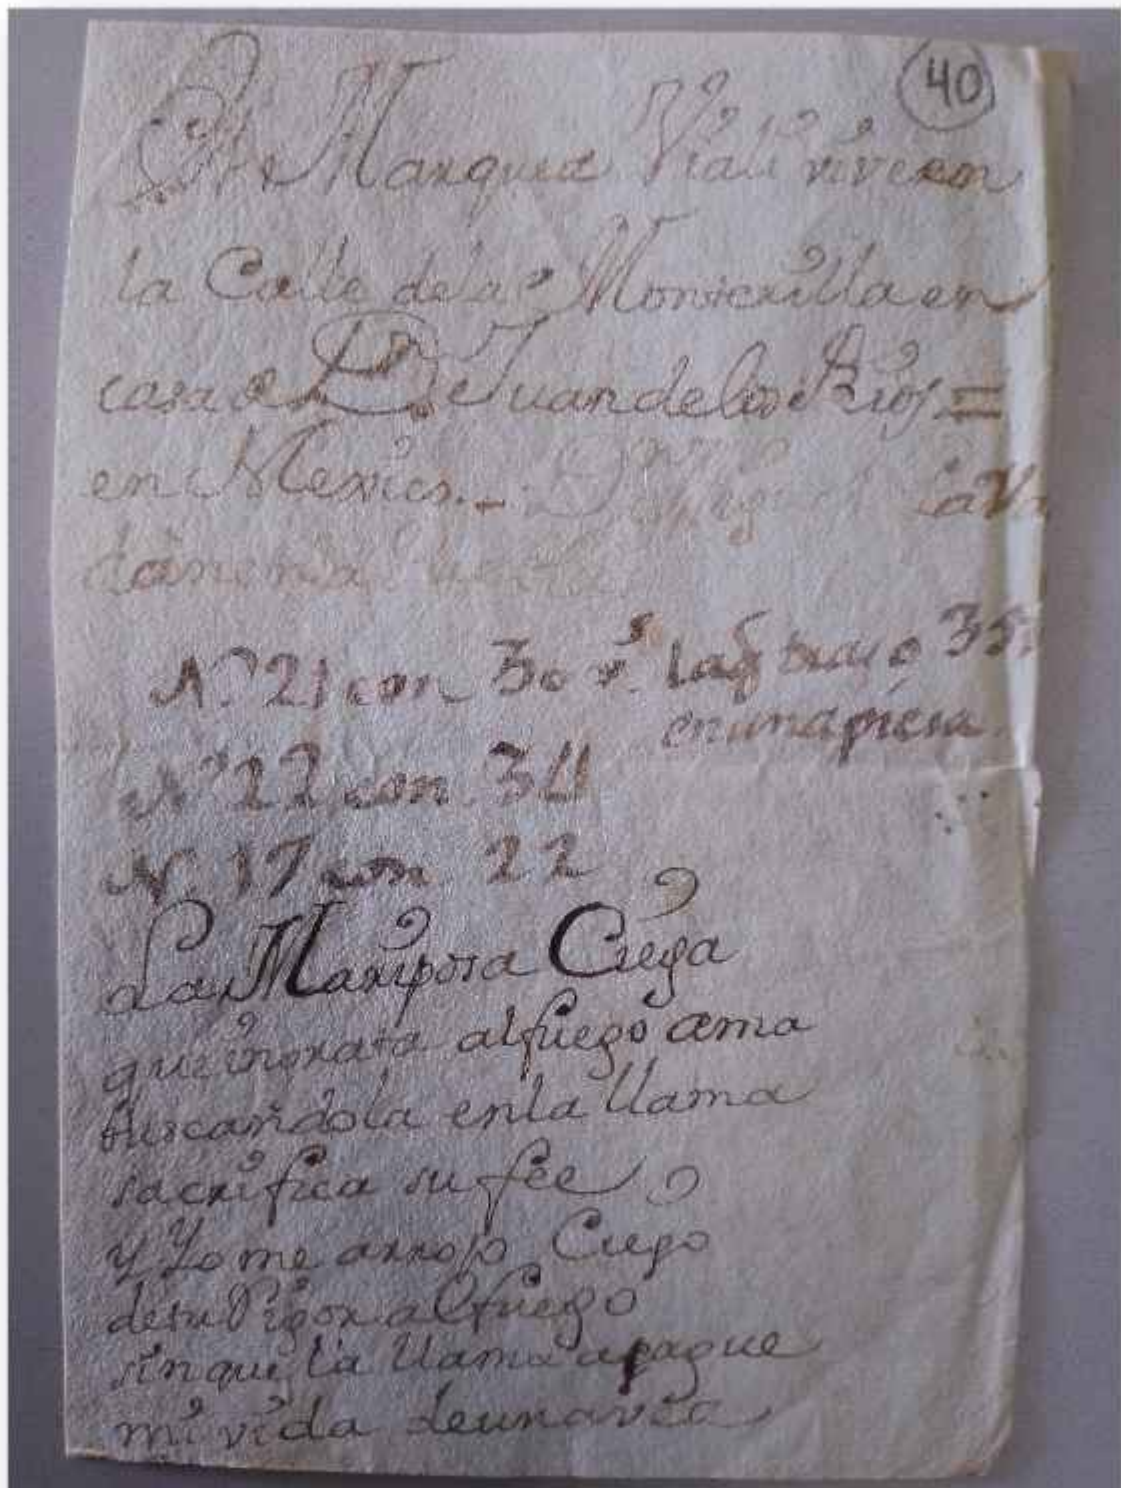 40
Marquez vive en
la Calle de la Monterilla en
casa de Dn Juan de los Rios =
en Mexico. -
No 21 con 30 vs las trajo 35
en una piesa
No 22 con 34
N. 17 con 22
La Mariposa Ciega
que inorata al fuego ama
buscandola en la llama
sacrifica su fee
y Yo me arrojo Ciego
de tu Rigor al fuego
sin que la llama apague
mi vida de una vez